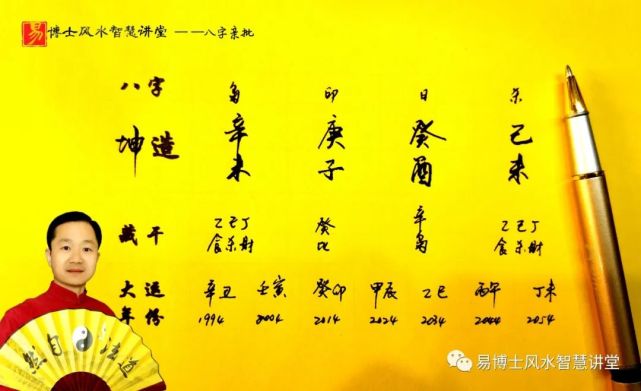 易博士风水智慧讲堂 ——八字亲批
八字 枭 印 日 杀
坤造 辛 庚 癸 己
未 子 酉 未
藏干 乙己丁 癸 辛 乙己丁
食杀财 比 枭 食杀财
大运 辛丑 壬寅 癸卯 甲辰 乙巳 丙午 丁未
年份 1994 2004 2014 2024 2034 2044 2054
然自法道
易博士风水智慧讲堂